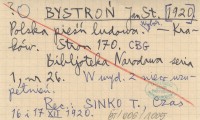 BYSTROŃ Jan St. [1920]
Polska pieśń ludowa. Wybór — Kra-
ków. Stron 170. CBG
Bibljoteka Narodowa seria
1, nr 26. W wyd. 2
pełnień.
Rec.: SINKO T., Czas
16 i 17 XII 1920.